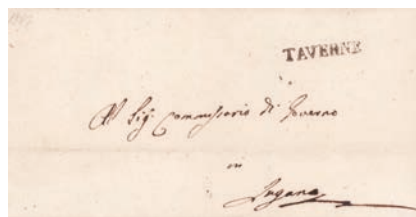 TAVERNE
Al Sig: Commissario di Governo
in
Lugano